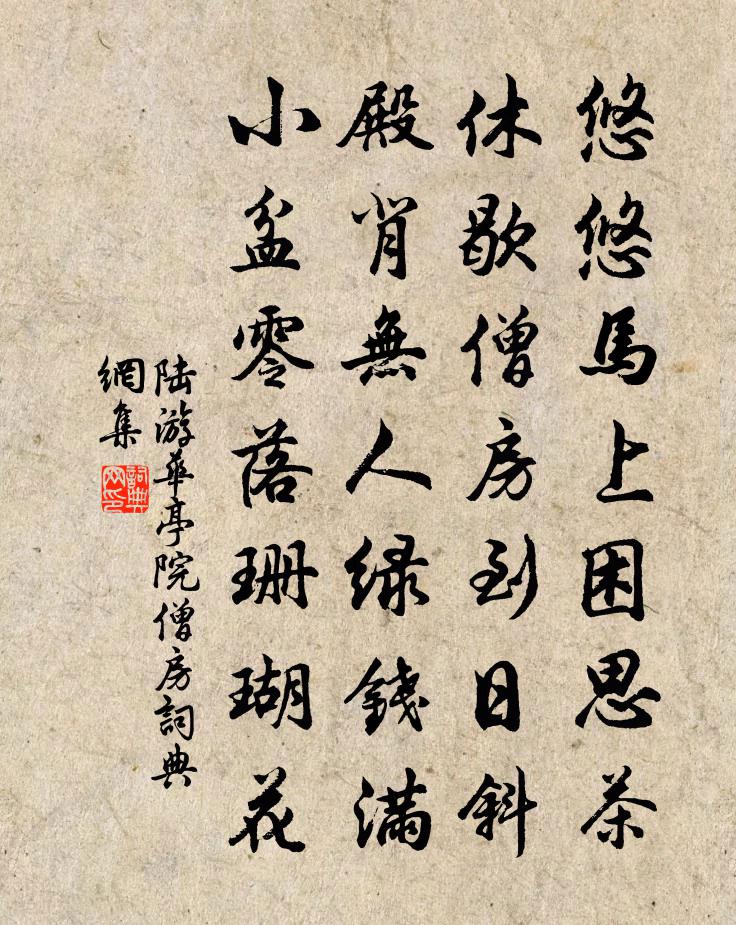 悠悠馬上困思茶
休歇僧房到日斜
殿背無人緑錢滿
小盆零落珊瑚花
陆游華亭院僧房詞典
網集
詞典
网印